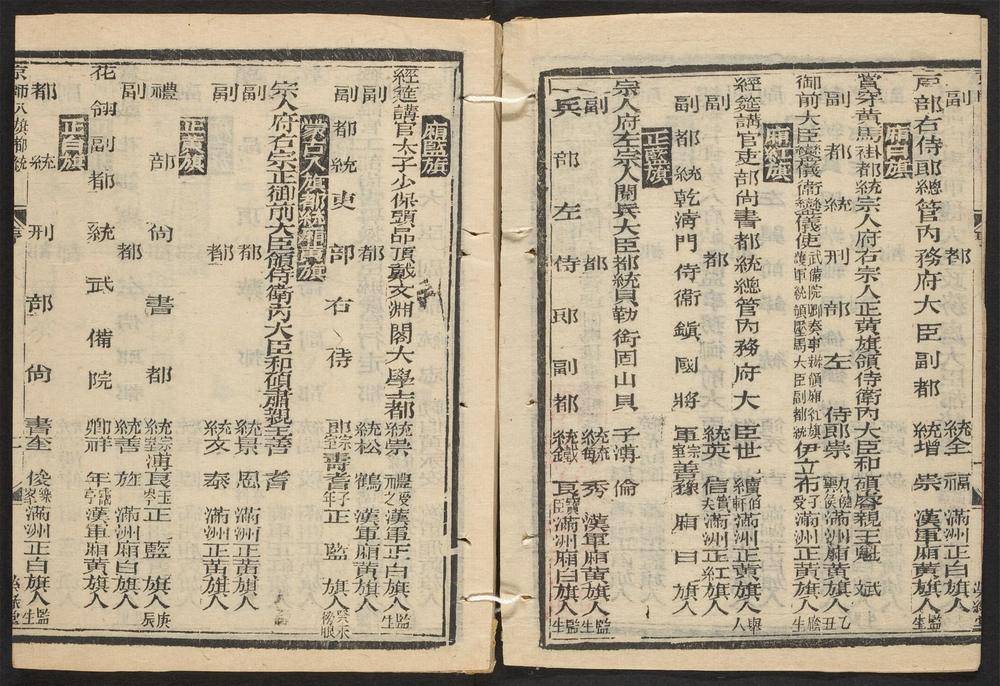 副都統全福滿洲正白旗人
戶部右侍郎總管內務府大臣副都統增崇漢軍廂黃旗人監生
廂白旗
賞穿黃馬褂都統宗人府右宗人正黃旗領侍衛內大臣和碩睿親王魁斌
副都統刑部左侍郎崇勳滿洲廂黃旗人乙丑
御前大臣鑾儀衛鑾儀使武備院卿奏事處領廂紅旗護軍統領壓馬大臣副都統伊立布滿洲正黃旗人生
廂紅旗
經筵講官吏部尚書都統總管內務府大臣世續伯軒滿洲正黃旗人舉人
副都統英信滿洲正紅旗人
副都統乾清門侍衛鎮國將軍宗室善豫廂白旗人
正藍旗
宗人府左宗人閱兵大臣都統貝勒銜固山貝子溥倫
副都統敏秀漢軍廂黃旗人監生
兵部左侍郎副都統鐵良寶臣滿洲廂白旗人監生
廂藍旗
經筵講官太子少保頭品頂戴文淵閣大學士都統崇禮受之漢軍正白旗人監生
副都統松鶴漢軍廂黃旗人
副都統吏部右侍郎宗室壽耆子年正藍旗人癸未榜眼
蒙古八旗都統廂黃旗
宗人府右宗正御前大臣領侍衛內大臣和碩肅親王善耆
副都統景恩滿洲正黃旗人
副都統文泰滿洲正黃旗人
正黃旗
禮部尚書都統宗室溥良玉岑正藍旗人庚辰
副都統善旌滿洲廂白旗人
花翎副都統武備院卿祥年滿漢軍廂黃旗人
正白旗
都統刑部尚書奎俊樂峯滿洲正白旗人監生
京師八旗都統